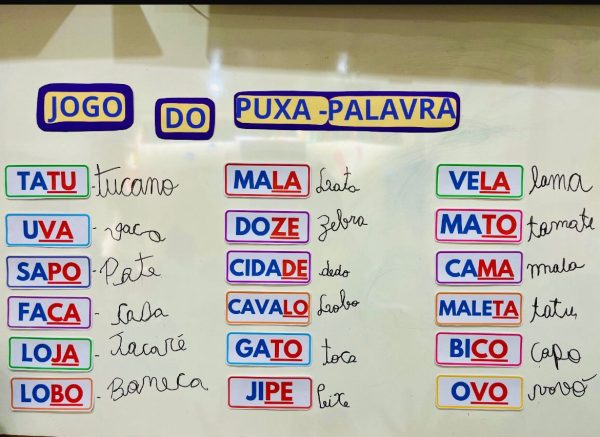 JOGO DO PUXA-PALAVRA
TATU - tucano
UVA - vaca
SAPO - Pote
FACA - casa
LOJA - Jacaré
LOBO - Boneca
MALA Lata
DOZE zebra
CIDADE dedo
CAVALO Lobo
GATO toca
JIPE Peixe
VELA lama
MATO tomate
CAMA mala
MALETA tatu
BICO copo
OVO vovó